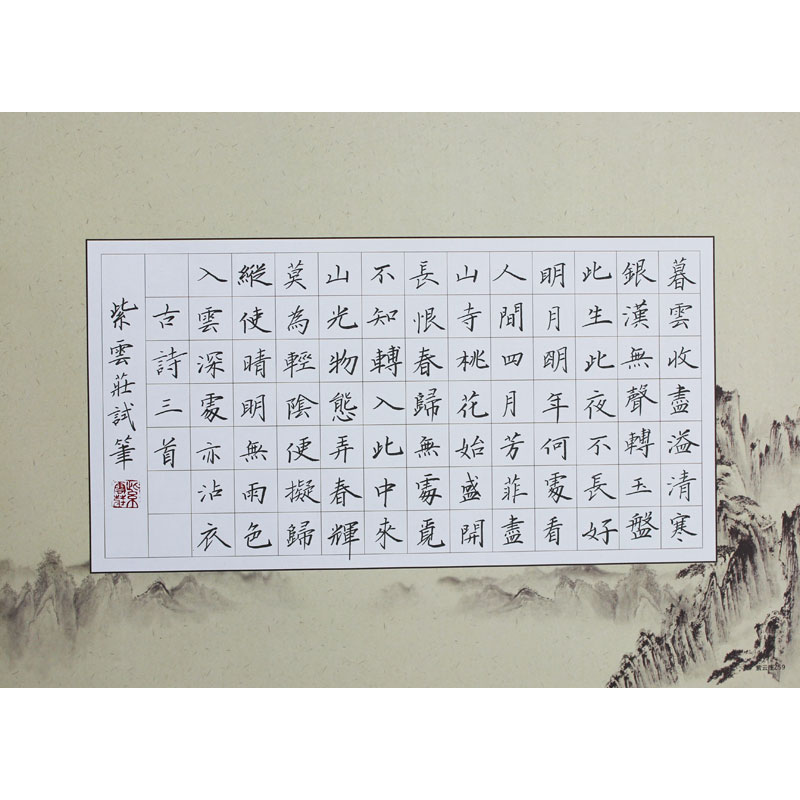 暮雲收盡溢清寒
銀漢無聲轉玉盤
此生此夜不長好
明月明年何處看
人間四月芳菲盡
山寺桃花始盛開
長恨春歸無處覓
不知轉入此中來
山光物態弄春輝
莫為輕陰便擬歸
縱使晴明無雨色
入雲深處亦沾衣
古詩三首
紫雲莊試筆